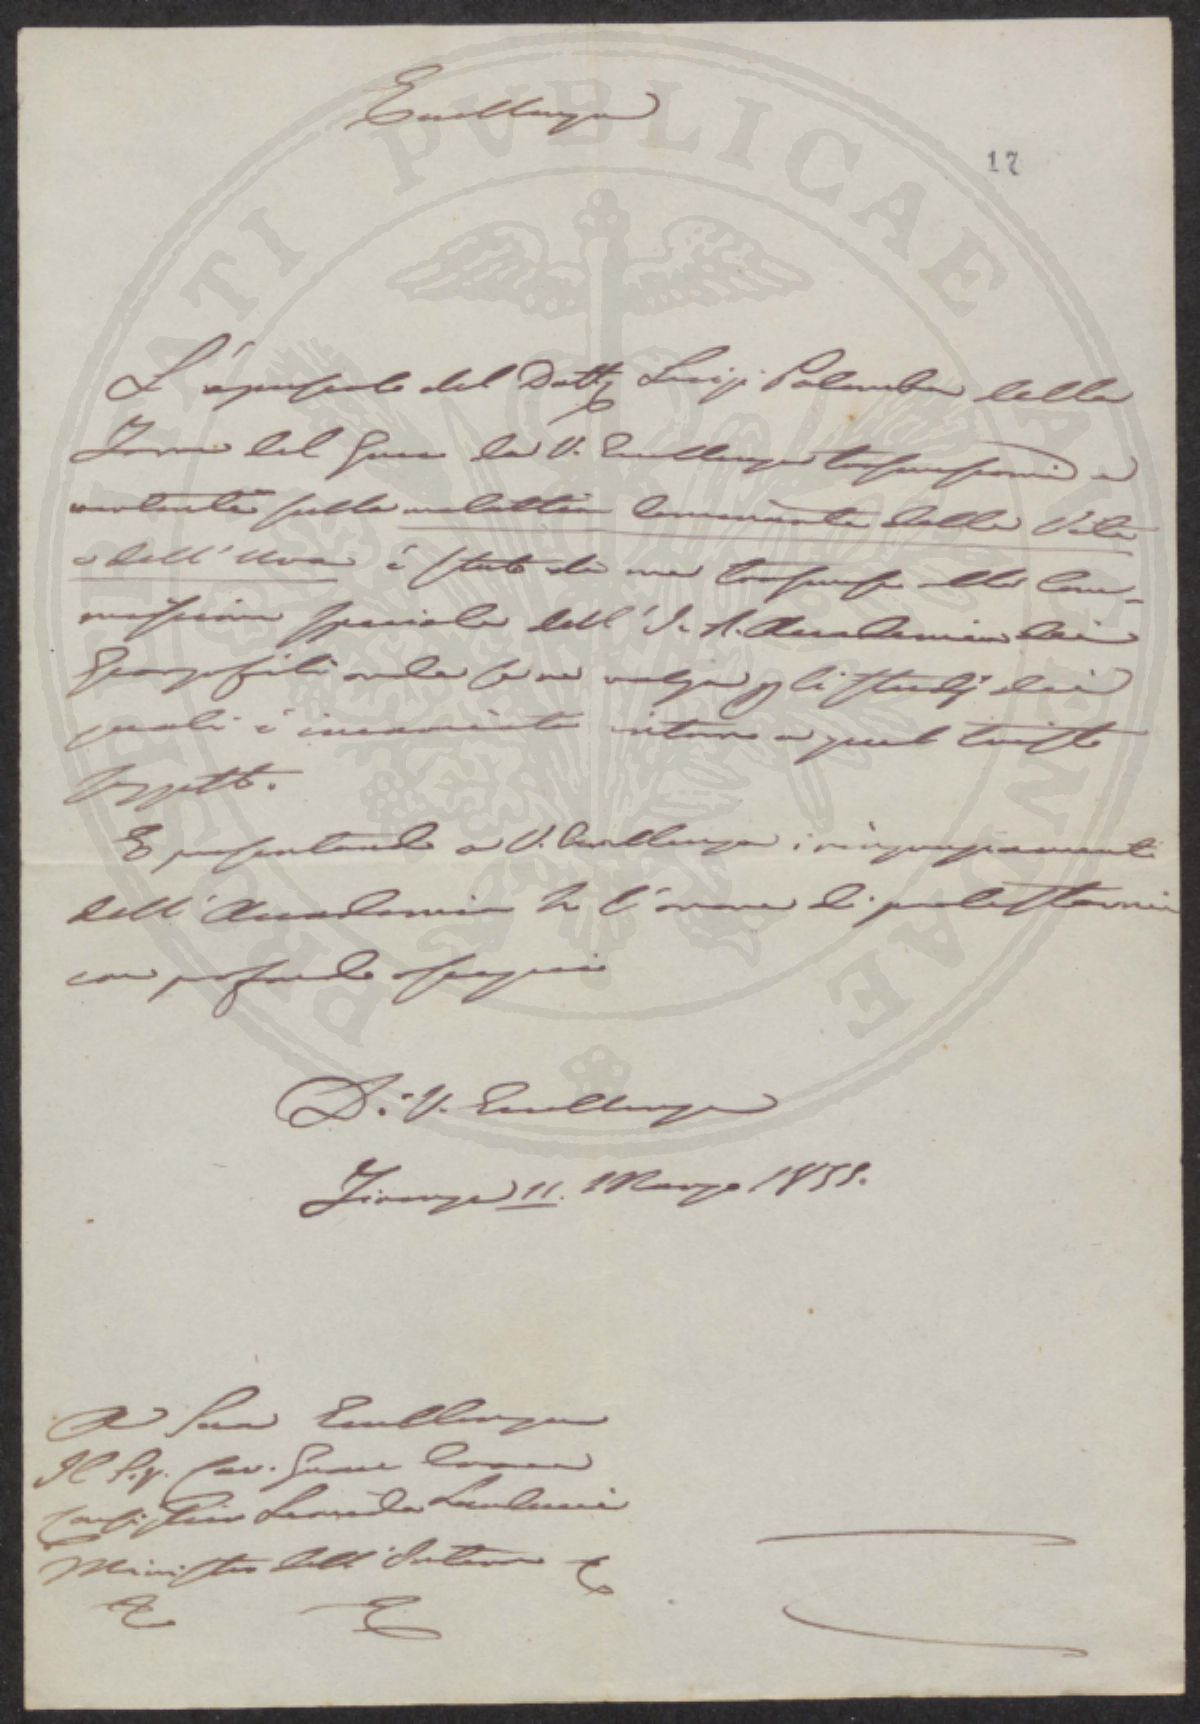 Eccellenza
17
L'opuscolo del Dott. Luigi Palomba della
Torre del Greco da V. Eccellenza trasmessomi e
vertente sulla malattia dominante della Vite
e dell'Uva è stato da me trasmesso alla Com-
missione speciale dell'I. R. Accademia dei
Georgofili onde se ne valga per gli studj dei
quali è incaricata intorno a quel tristo
soggetto.
E presentando a V. Eccellenza i ringraziamenti
dell'Accademia ho l'onore di protestarmi
con profondo ossequio
Di V. Eccellenza
Firenze 11. Marzo 1855.
A Sua Eccellenza
Il Sig. Cav. Gran Croce
Leonida Landucci
Ministro dell'Interno
PROSPERITATI PVBLICAE AVGENDAE